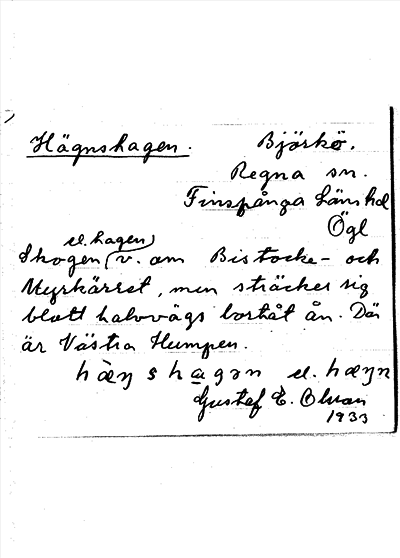 Hägnshagen.
Björkö.
Regna sn.
Finspånga länshd
Ögl
el. hagen)
Skogen (v. om Bistocke- och
Myrkärret, men sträcker sig
blott halvvägs bortåt ån. Där
är Västra Humpen.
hæŋshagən el. hæŋn
Gustaf E. Olsson
1933